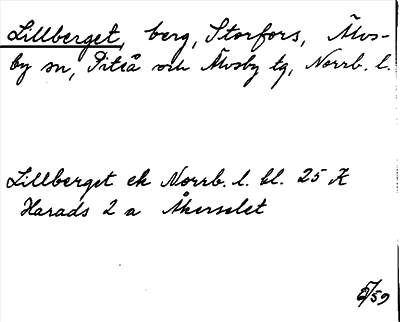 Lillberget, berg, Storfors, Älvs-
by sn, Piteå och Älvsby tg, Norrb. l.
Lillberget ek Norrb. l. bl. 25 K
Harads 2 a Åkerselet
/59